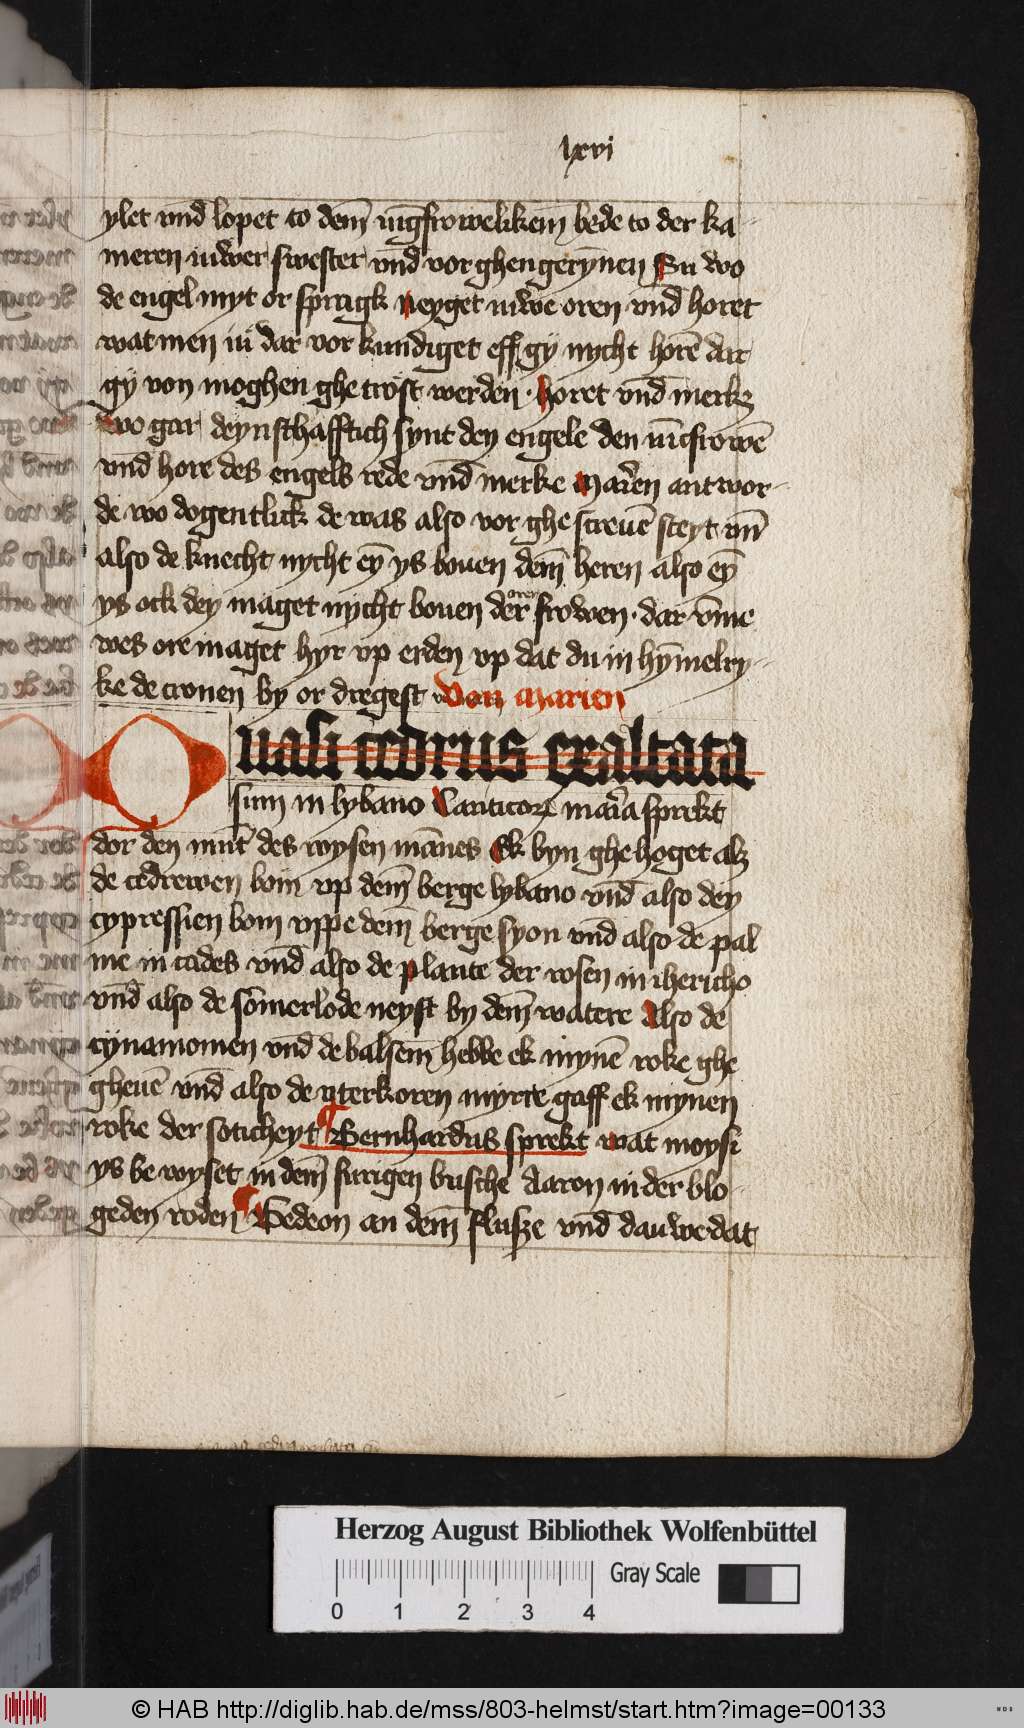 lxvi
ylet vnd̄ lopet to dem̄ iūgfrowelikem bede to der ka-
meren iuwer swester vnd̄ vor ghengerynen Su wo
de engel myt or spragk neyget iuwe oren vnd̄ horet
wat men iu dar vor kundiget eff gy nycht horē dar
gy von moghen ghetrost werden · horet vnd̄ merkz
wo gar deynsthafftich synt dey engele den iūcfrowē
vnd̄ hore des engels rede vnd̄ merke marien antwor-
de wo dogentlick de was also vor ghe screuē steyt vn̄
also de knecht nycht ey̅ ys bouen dem̄ heren also ey̅
ys ock dey maget nycht bouen der oren frowen · dar vm̄e
wes ore maget hyr vp erden vp dat du in hȳmelry-
ke de cronen by or dregest Van marien
Quasi cedrus exaltata
sum in lybano Canticorꝝ maria sprekt
dor den mūt des wysen mānes Ek byn ghehoget alz
de cedrewen bom vp dem̄ berge lybano vnd̄ also dey
cypressien bom vppe dem̄ berge syon vnd̄ also de pal
me in cades vnd̄ also de plante der rosen in ihericho
vnd̄ also de somerlode neyst by dem̄ watere Also de
cynamomen vnd̄ de balsem̄ hebbe ek mynē roke ghe
gheuē vnd̄ also de vterkoren myrre gaff ek mynen
roke der soticheyt ¶ Bernhardus sprekt wat moysi
ys be wyset in dem̄ furigen busche Aaron in der blo-
geden roden ¶ Gedeon an dem̄ flusze vnd̄ dauwe dat
Herzog August Bibliothek Wolfenbüttel
Gray Scale
0 1 2 3 4
© HAB http://diglib.hab.de/mss/803-helmst/start.htm?image=00133